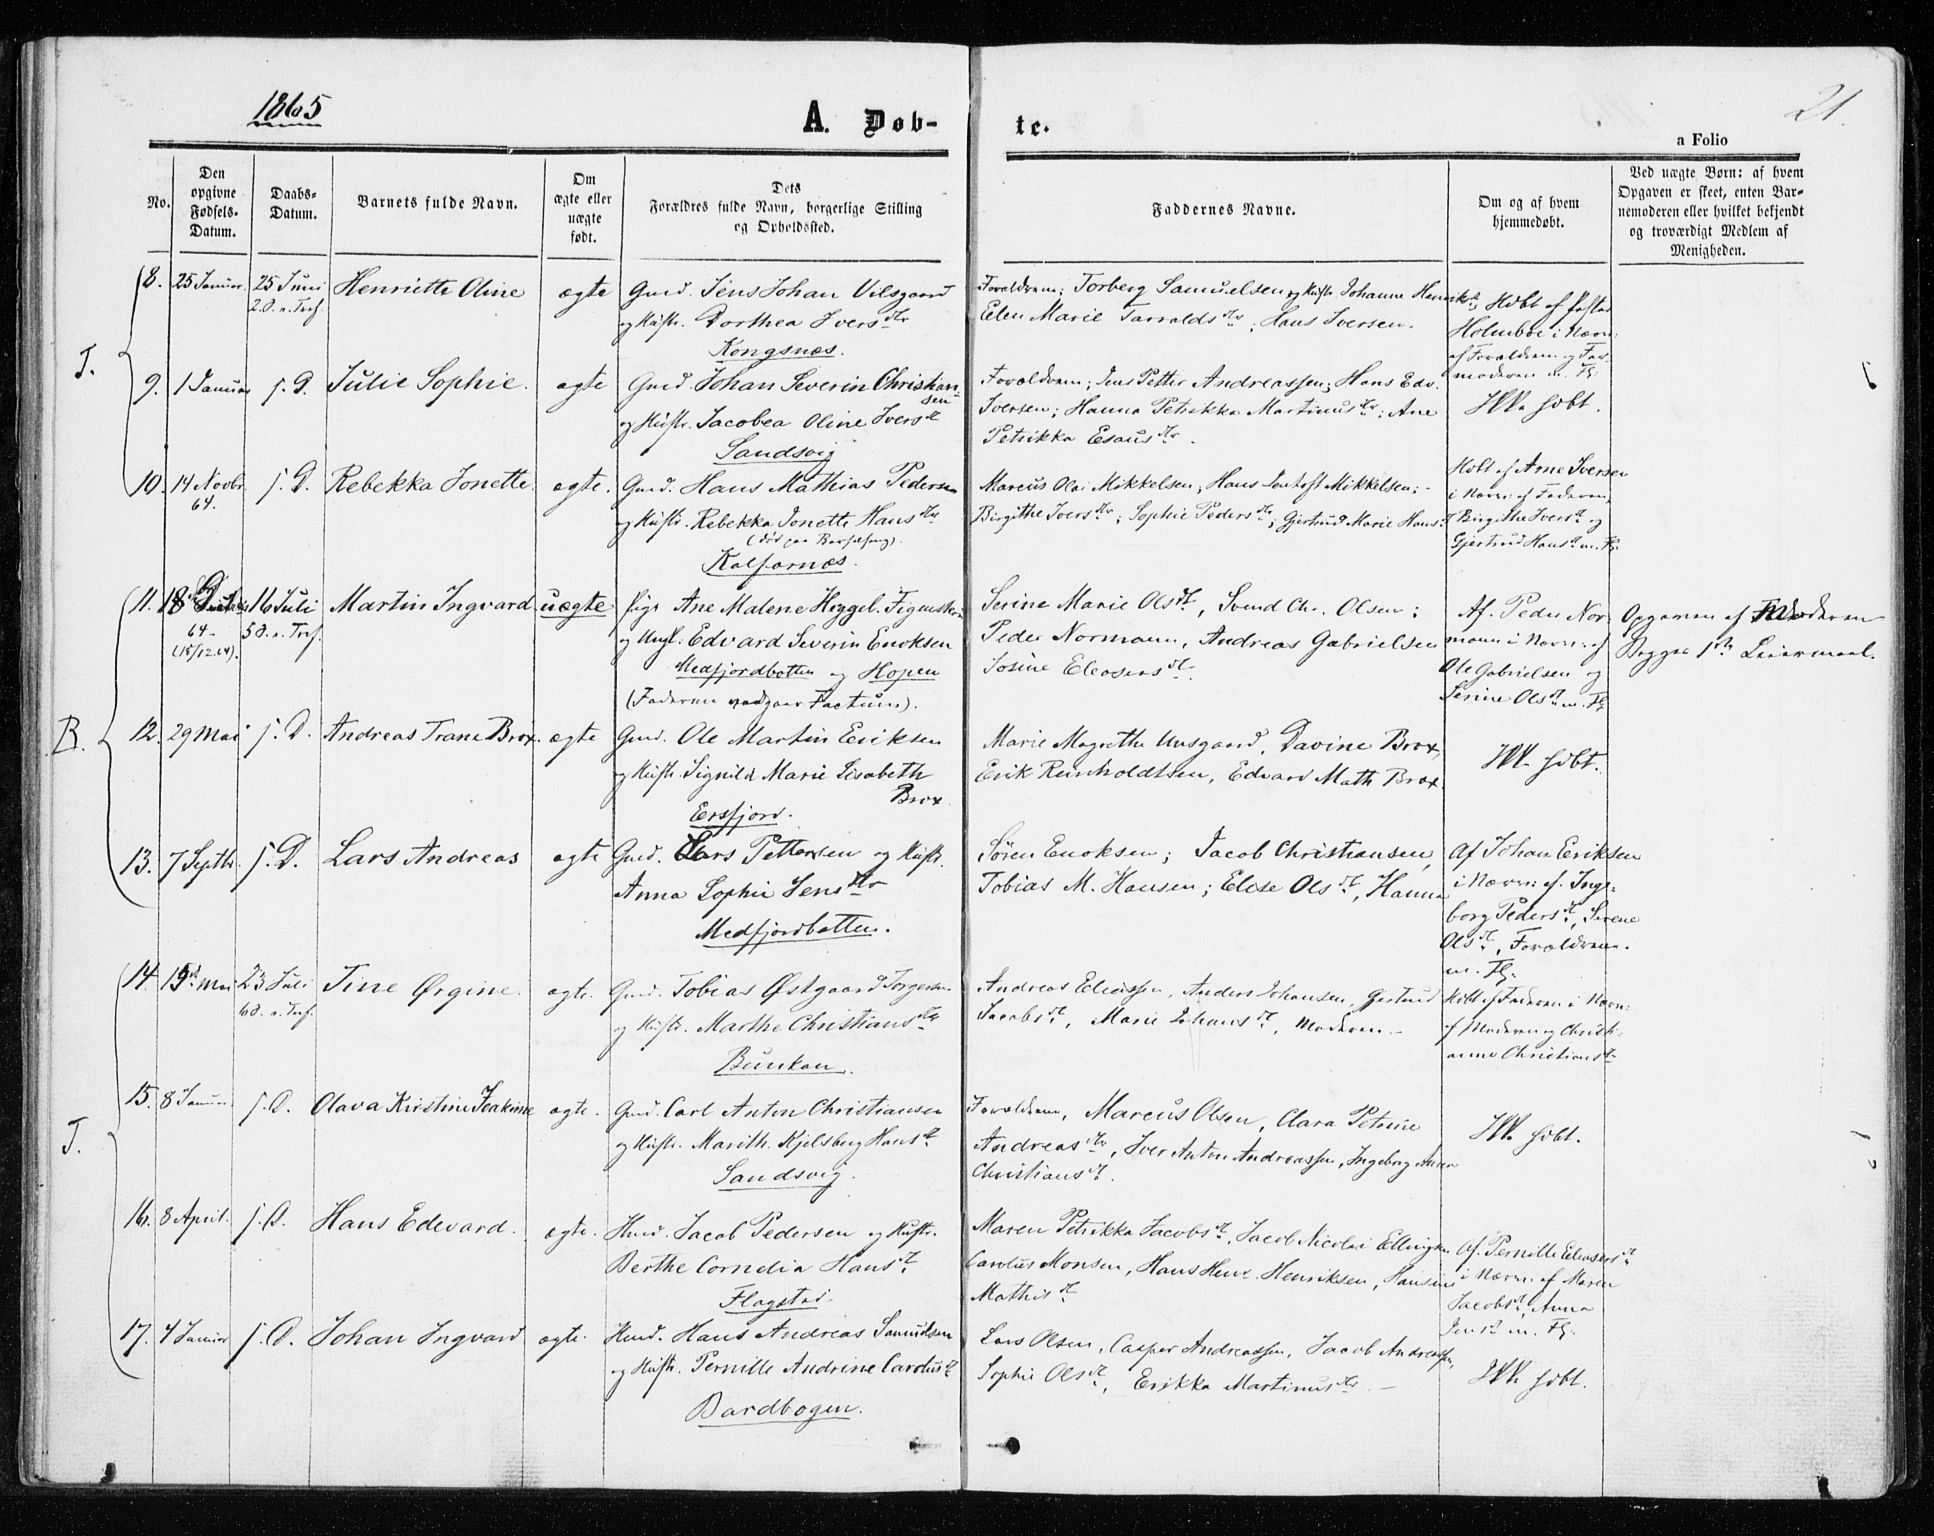 1865
21.
A. Døb-
te.
a Folio
No.
Den opgivne Fødsels-Datum.
Daabs-Datum.
Barnets fulde Navn.
Om ægte eller uægte født.
Dets Forældres fulde Navn, borgerlige Stilling og Opholdssted.
Faddernes Navne.
Om og af hvem hjemmedøbt.
Ved uægte Børn: af hvem Opgaven er skeet, enten Barnemoderen eller hvilket bekjendt og troværdigt Medlem af Menigheden.
T.
8. 25 Januar. 25 Juni Henriette Oline ægte Gmd. Jens Johan Vilsgaard
2. S. e. Tref. og Hustr. Dorthea Iversdtr
Kongsnæs.
Forældrene; Torberg Samuelsen og Hustr. Johanne Henriksdt;
Elen Marie Tarraldsdtr; Hans Iversen.
Hdbt af Pastor
Holmboe i Nærv:
af Forældrene og Far-
moderen m. Fl.
9. 1 Januar s. D. Julie Sophie. ægte Gmd. Johan Severin Christian-
sen
og Hustr. Jacobea Oline Iversdt
Sandsvig
Forældrene; Jens Petter Andreassen; Hans Edv.
Iversen; Hanna Petrikka Martinusdtr; Ane
Petrikka Esausdtr.
Ikke hdbt.
10. 14 Novbr. s. D. Rebekka Jonette. ægte. Gmd. Hans Mathias Pedersen
64. og Hustr. Rebekka Jonette Hansdtr
(død paa Barselseng).
Kalfarnæs.
Marcus Olai Mikkelsen; Hans Mikkelsen; -
Birgithe Iversdtr; Sophie Pedersdtr; Gjertrud Marie Hansdt
Hdbt af Arne Iversen
i Nærv: af Faderen,
Birgithe Iversdt og
Gjertrud Hansdt m. Fl.
B.
11. 18 16 Juli Martin Ingvard uægte Pige Ane Malene Heggel. 
64 5 S. e. Tref. og Ungk. Edvard Severin Enoksen
(18/12 64). Medfjordbotten og Hopen
(Faderen vedgaar Factum).
Serine Marie Olsdt, Svend Chr. Olsen;
Peder Normann, Andreas Gabrielsen
Josine Eleasersdt.
Af Peder Nor-
mann i Nærv: af
Ole Gabrielsen og
Serine Olsdt m. Fl.
Opgaven af Moderen
Begges 1ste Leiermaal.
12. 29 Mai s. D. Andreas Trane Brox. ægte Gmd. Ole Martin Eriksen
og Hustr. Signild Marie Lisabeth
Brox
Ersfjord.
Marie Magrethe Unsgaard, Davine Brox,
Erik Reinholdtsen, Edvard Math Brox
Ikke hdbt.
13. 7 Septbr. s. D. Lars Andreas ægte Gmd. Lars Pettersen og Hustr.
Anna Sophie Jensdtr
Medfjordbotten.
Søren Enoksen; Jacob Christiansen,
Tobias M. Hansen; Elise Olsdt, Hanna
Af Johan Eriksen
i Nærv: af Inge-
borg Pedersdt, Serine
Olsdt, Forældrene
m. Fl.
T.
14. 15 Mai 23 Juli Tine Ørgine. ægte. Gmd. Tobias Østgaard Torgersen
6 S. e. Tref. og Hustr. Marthe Christiansdtr
Bunkan.
Andreas Eliassen, Anders Johansen, Gjertrud
Jacobsdt, Marie Johansdt, Moderen -
Hdbt af Faderen i Nærv:
af Moderen og Christi-
anna Christiansdt
15. 8 Januar s. D. Olava Kirstine Joakime ægte. Gmd. Carl Anton Christiansen
og Hustr. Marith. Kjelsberg Hansdt
Sandsvig.
Forældrene, Marcus Olsen, Clara Petrine
Andreasdtr, Iver Anton Andreassen, Ingeborg Anna
Christiansdt.
Ikke hdbt.
16. 8 April. s. D. Hans Edevard. ægte. Hmd. Jacob Pedersen og Hustr.
Berthe Cornelia Hansdt
Flagstad.
Maren Petrikka Jacobsdt, Jacob Nicolai Ellingsen
Carolus Monsen, Hans Henr. Henriksen, Hansine
Mathisdt
Af Pernille Eleasersdt
i Nærv: af Maren
Jacobsdt, Anna
Jensdt m. Fl.
17. 4 Januar s. D. Johan Ingvard ægte. Hmd. Hans Andreas Samuelsen
og Hustr. Pernille Andrine Carolusdt
Bardbogen.
Lars Olsen, Casper Andreassen, Jacob Andreassen,
Sophie Olsdt, Erikka Martinusdtr. -
Ikke hdbt.